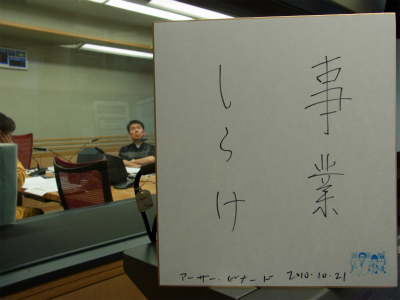 事業
しらけ
アーサー・ビナード 2010.10.21